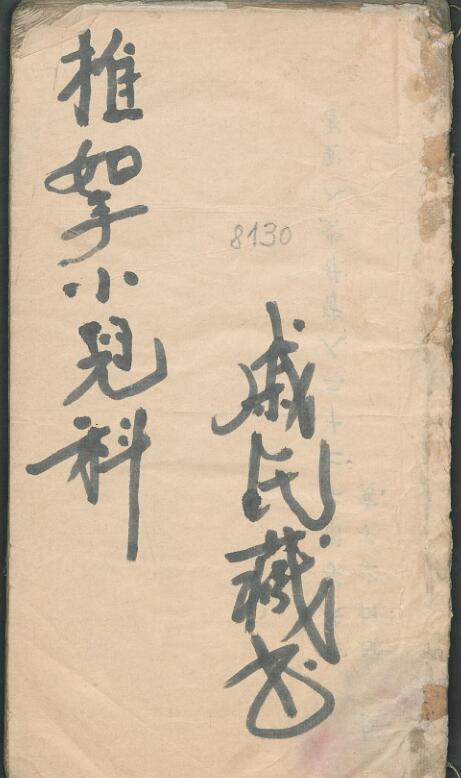 戚氏藏书
8130
推挐小兒科